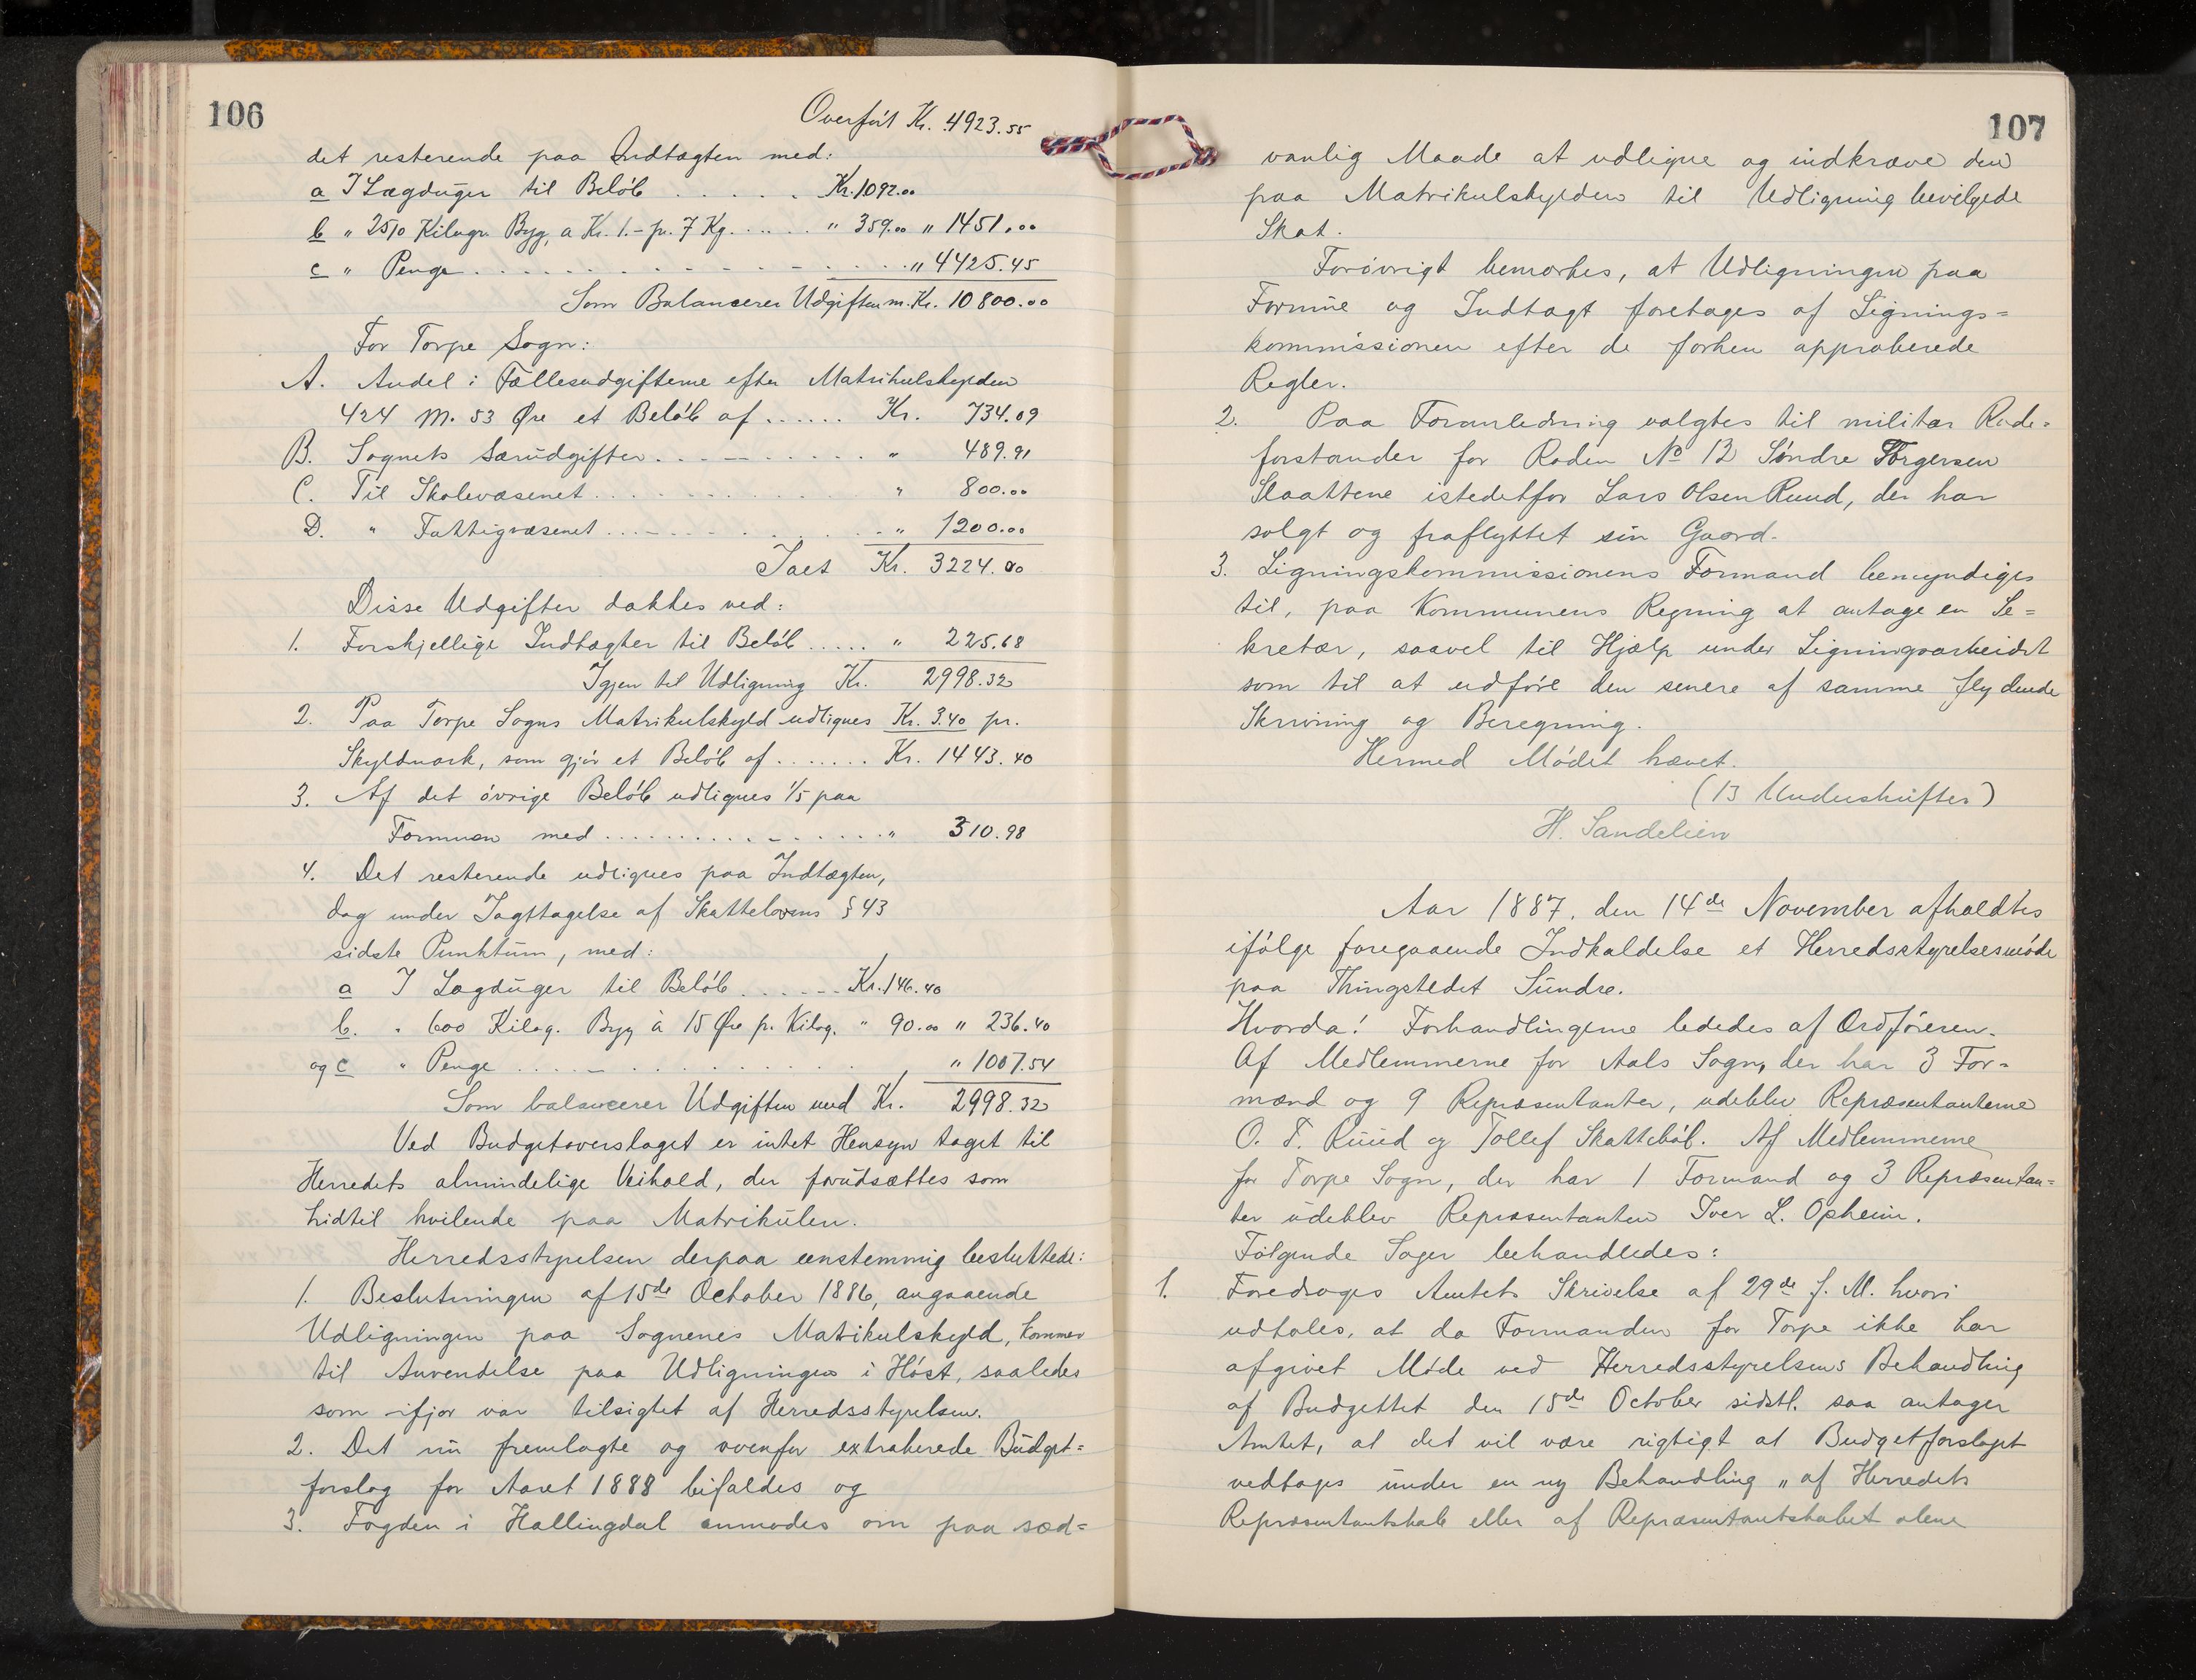 106
Overført Kr. 4923.55
det resterende paa Indtægten med:
a I Lægduger til Beløb . . . . . . Kr. 1092.00
b " 2510 Kilogr. Byg, a Kr. 1.- pr. 7 Kg. . . . . . " 359.00 " 1451.00
c " Penge . . . . . . . . . . . . . " 4425.45
Som Balancerer Udgiften m. Kr. 10800.00
For Torpe Sogn:
A. Andel i Fællesudgifterne efter Matrikulskylden
424 M. 53 Øre et Beløb af . . . . . . Kr. 734.09
B. Sognets Særudgifter . . . . . . . . . " 489.91
C. Til Skolevæsenet . . . . . . . . . . . " 800.00
D. " Fattigvæsenet . . . . . . . . . . . " 1200.00
Iact Kr. 3224.00
Disse Udgifter dækkes ved:
1. Forskjellige Indtægter til Beløb . . . . . " 225.68
Igjen til Udligning Kr. 2998.32
2. Paa Torpe Sogns Matrikulskyld udlignes Kr. 3.40 pr.
Skyldmark, som gjør et Beløb af . . . . . . . Kr. 1443.40
3. Af det øvrige Beløb udlignes 1/5 paa
Formuen med . . . . . . . . . . . . . . . " 310.98
4. Det resterende udlignes paa Indtægten,
dog under Iagttagelse af Skattelovens § 43
sidste Punktum, med:
a I Lægduger til Beløb . . . . . . Kr. 146.40
b. " 600 Kilog. Byg à 15 Øre pr. Kilog. " 90.00 " 236.40
og c " Penge . . . . . . . . . . . . . . " 1007.54
Som balancerer Udgiften med Kr. 2998.32
Ved Budgetoverslaget er intet Hensyn taget til
Herredets almindelige Veihold, der forudsættes som
hidtil hvilende paa Matrikulen.
Herredsstyrelsen derpaa eenstemmig besluttede:
1. Beslutningen af 15de October 1886, angaaende
Udligningen paa Sognenes Matrikulskyld, kommer
til Anvendelse paa Udligningen i Høst, saaledes
som ifjor var tilsigtet af Herredsstyrelsen.
2. Det nu fremlagte og ovenfor extraherede Budget=
forslag for Aaret 1888 bifaldes og
3. Fogden i Hallingdal anmodes om paa sæd=
107
vanlig Maade at udligne og indkræve den
paa Matrikulskylden til Udligning bevilgede
Skat.
Forøvrigt bemærkes, at Udligningen paa
Formue og Indtægt foretages af Lignings=
kommissionen efter de forhen approberede
Regler.
2. Paa Foranledning valgtes til militær Rode=
forstander for Roden No 12 Søndre Torgersen
Slaattene istedetfor Lars Olsen Ruud, der har
solgt og fraflyttet sin Gaard.
3. Ligningskommissionens Formand bemyndiges
til, paa Kommunens Regning at antage en Se=
kretær, saavel til Hjælp under Ligningsarbeidet
som til at udføre den senere af samme flydende
Skrivning og Beregning.
Hermed Mødet hævet.
(13 Underskrifter)
H. Sandelien
Aar 1887. den 14de November afholdtes
ifølge foregaaende Indkaldelse et Herredsstyrelsesmøde
paa Thingstedet Sundre.
Hvorda! Forhandlingerne lededes af Ordføreren.
Af Medlemmerne for Aals Sogn, der har 3 For=
mænd og 9 Repræsentanter, udeblev Repræsentanterne
O. T. Ruud og Tollef Skattebøl. Af Medlemmerne
for Torpe Sogn, der har 1 Formand og 3 Repræsentan=
ter udeblev Repræsentanten Iver L. Opheim.
Følgende Sager behandledes:
1. Foredroges Amtets Skrivelse af 29de f. M. hvori
udtales, at da Formanden for Torpe ikke har
afgivet Møde ved Herredsstyrelsens Behandling
af Budgettet den 15de October sidstl. saa antager
Amtet, at det vil være rigtigt at Budgetforslaget
vedtages under en ny Behandling „af Herredets
Repræsentantskab eller af Repræsentantskabet alene